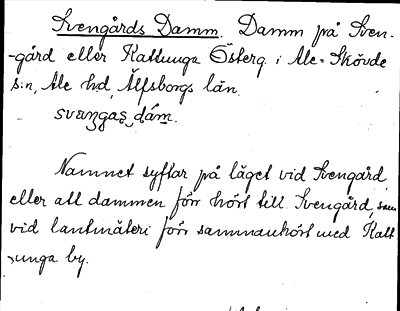 Svengårds Damm. Damm på Sven-
-gård eller Kattunga Österg. i Ale-Skövde
s:n, Ale hd, Älfsborgs län.
svaŋgas dám.
Namnet syftar på läget vid Svengård,
eller att dammen förr hört till Svengård, som
vid lantmäteri förr sammanhört med Katt
unga by.